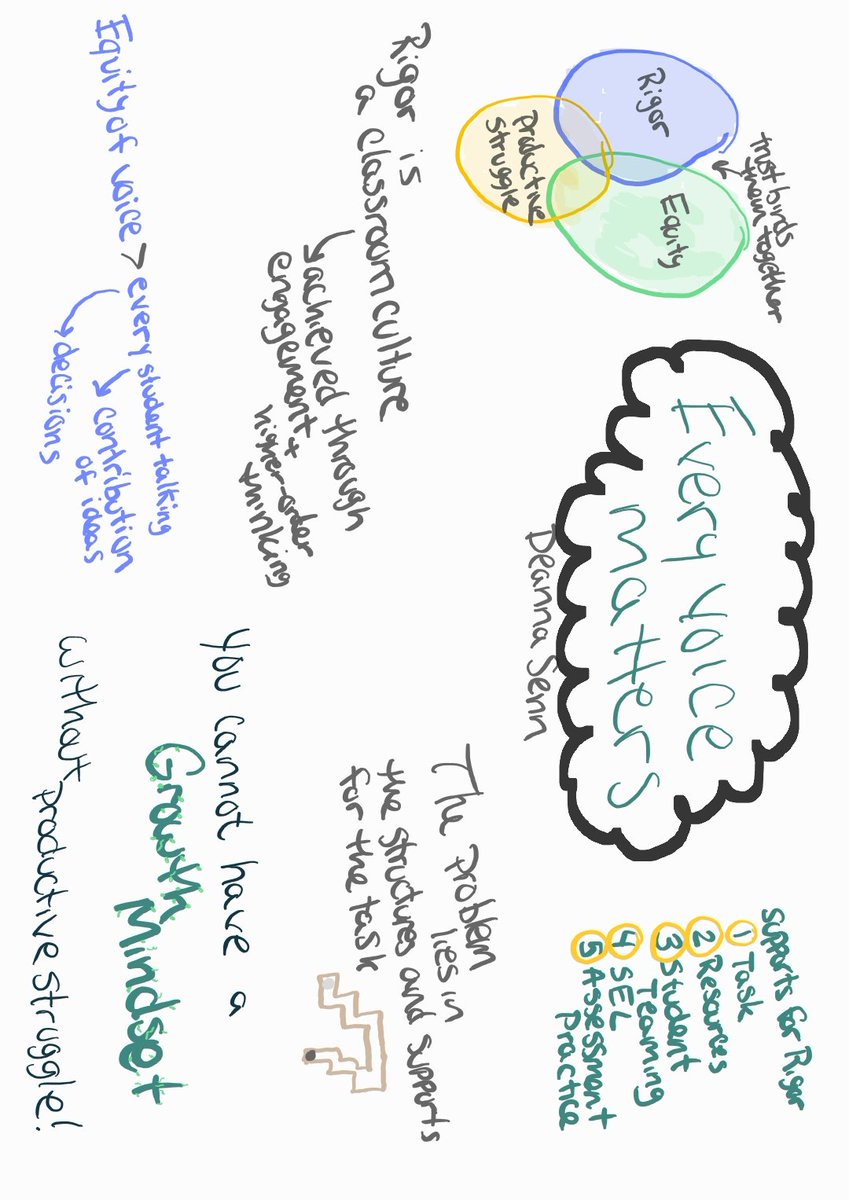 trust binds
them together
Rigor
Equity
Productive
Struggle
Every voice
matters
Deanna Senn
Supports for Rigor
1 Task
2 Resources
3 Student
Teaming
4 SEL
5 Assessment
Practice
Rigor is
a classroom culture
achieved through
engagement +
higher-order
thinking
The problem
lies in
the structures and supports
for the task
Equity of voice > every student talking
contribution
of ideas
decisions
You cannot have a
Growth Mindset
without productive struggle!